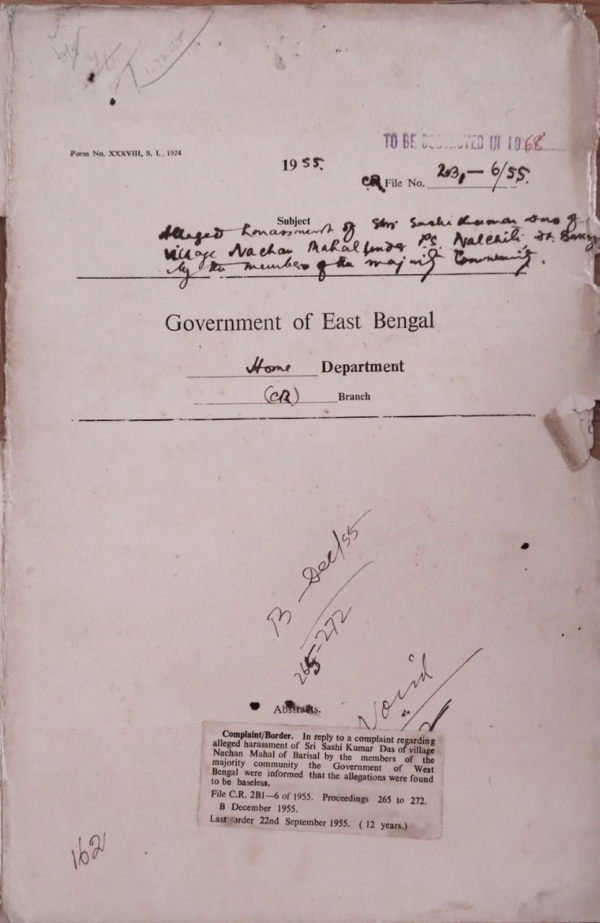 Form No. XXXVIII, S. I., 1924
TO BE DESTROYED IN 1968
1955.
CR File No. 2B1-6/55.
Subject
Alleged harassment of Shri Sashi Kumar Das of
village Nachan Mahal under P.S. Nalchiti, Dt.
by the members of the majority Community.
Government of East Bengal
Home Department
(CR) Branch
B - Dec/55
265-272
Abstracts.
Complaint/Border. In reply to a complaint regarding
alleged harassment of Sri Sashi Kumar Das of village
Nachan Mahal of Barisal by the members of the
majority community the Government of West
Bengal were informed that the allegations were found
to be baseless.
File C.R. 2B1—6 of 1955. Proceedings 265 to 272.
B December 1955.
Last order 22nd September 1955. (12 years.)
162